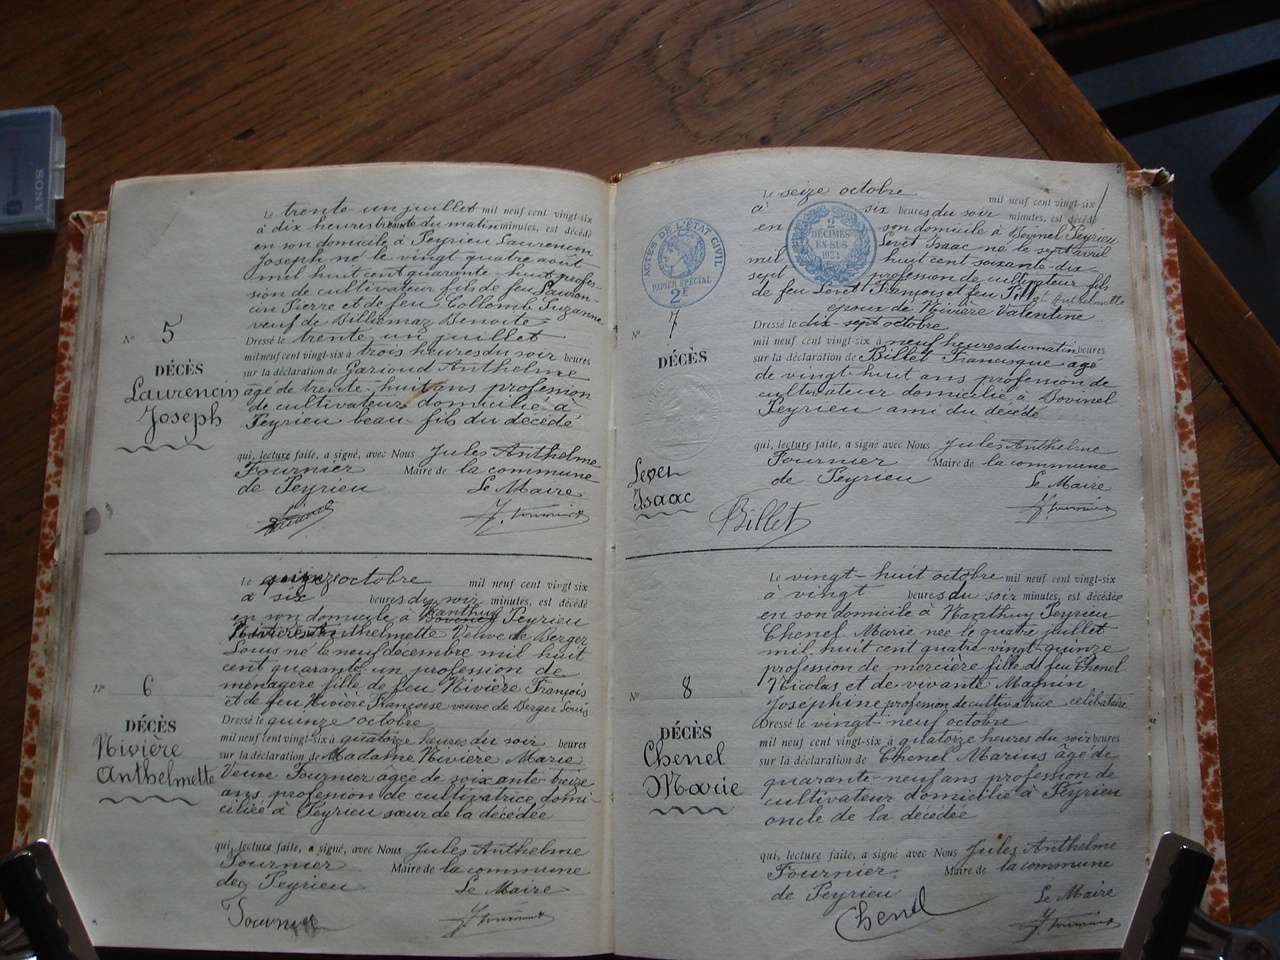 SONY
Le trente un juillet mil neuf cent vingt-six
à dix heures trente du matin minutes, est décédé
en son domicile à Peyrieu Laurencin
Joseph né le vingt quatre août
mil huit cent quarante-huit profes-
sion de cultivateur fils de feu Lauren-
cin Pierre et de feu Collomb Suzanne
veuf de Billiemaz Benoite
Dressé le trente un juillet
mil neuf cent vingt-six à trois heures du soir heures
sur la déclaration de Garioud Anthelme
âgé de trente-huit ans profession
de cultivateur domicilié à
Peyrieu beau-fils du décédé
N° 5
DÉCÈS
Laurencin
Joseph
qui, lecture faite, a signé, avec Nous Jules Anthelme
Fournier Maire de la commune
de Peyrieu Le Maire
J. Fournier
Le quinze octobre mil neuf cent vingt-six
à six heures du soir minutes, est décédé
en son domicile à Nanthuy Peyrieu
Rivière Anthelmette Veuve de Berger
Louis né le neuf decembre mil huit
cent quarante un profession de
ménagère fille de feu Rivière François
et de feu Rivière Françoise veuve de Berger Louis
Dressé le quinze octobre
mil neuf cent vingt-six à quatorze heures du soir heures
sur la déclaration de Madame Rivière Marie
Veuve Fournier agée de soixante-treize
ans profession de cultivatrice domi-
ciliée à Peyrieu sœur de la décédée
N° 6
DÉCÈS
Rivière
Anthelmette
qui, lecture faite, a signé, avec Nous Jules Anthelme
Fournier Maire de la commune
de Peyrieu Le Maire
Fournier J. Fournier
ACTES DE L'ÉTAT CIVIL
PAPIER SPÉCIAL
2F
2
DÉCIMES
EN SUS
1924
Le seize octobre mil neuf cent vingt-six
à six heures du soir minutes, est décédé
en son domicile à Bovinel Peyrieu
Levet Isaac né le sept avril
mil huit cent soixante-dix
sept profession de cultivateur fils
de feu Levet François et feu Anthelmette
époux de Rivière Valentine
Dressé le dix-sept octobre
mil neuf cent vingt-six à neuf heures du matin heures
sur la déclaration de Billet Francisque agé
de vingt-huit ans profession de
cultivateur domicilié à Bovinel
Peyrieu ami du décédé
N° 7
DÉCÈS
Levet
Isaac
qui, lecture faite, a signé avec Nous Jules Anthelme
Fournier Maire de la commune
de Peyrieu Le Maire
Billet J. Fournier
Le vingt-huit octobre mil neuf cent vingt-six
à vingt heures du soir minutes, est décédée
en son domicile à Nanthuy Peyrieu
Chenel Marie née le quatre juillet
mil huit cent quatre-vingt-quinze
profession de mercière fille de feu Chenel
Nicolas et de vivante Magnin
Josephine profession de cultivatrice célibataire
Dressé le vingt-neuf octobre
mil neuf cent vingt-six à quatorze heures du soir heures
sur la déclaration de Chenel Marius âgé de
quarante-neuf ans profession de
cultivateur domicilié à Peyrieu
oncle de la décédée
N° 8
DÉCÈS
Chenel
Marie
qui, lecture faite, a signé, avec Nous Jules Anthelme
Fournier Maire de la commune
de Peyrieu Le Maire
Chenel J. Fournier